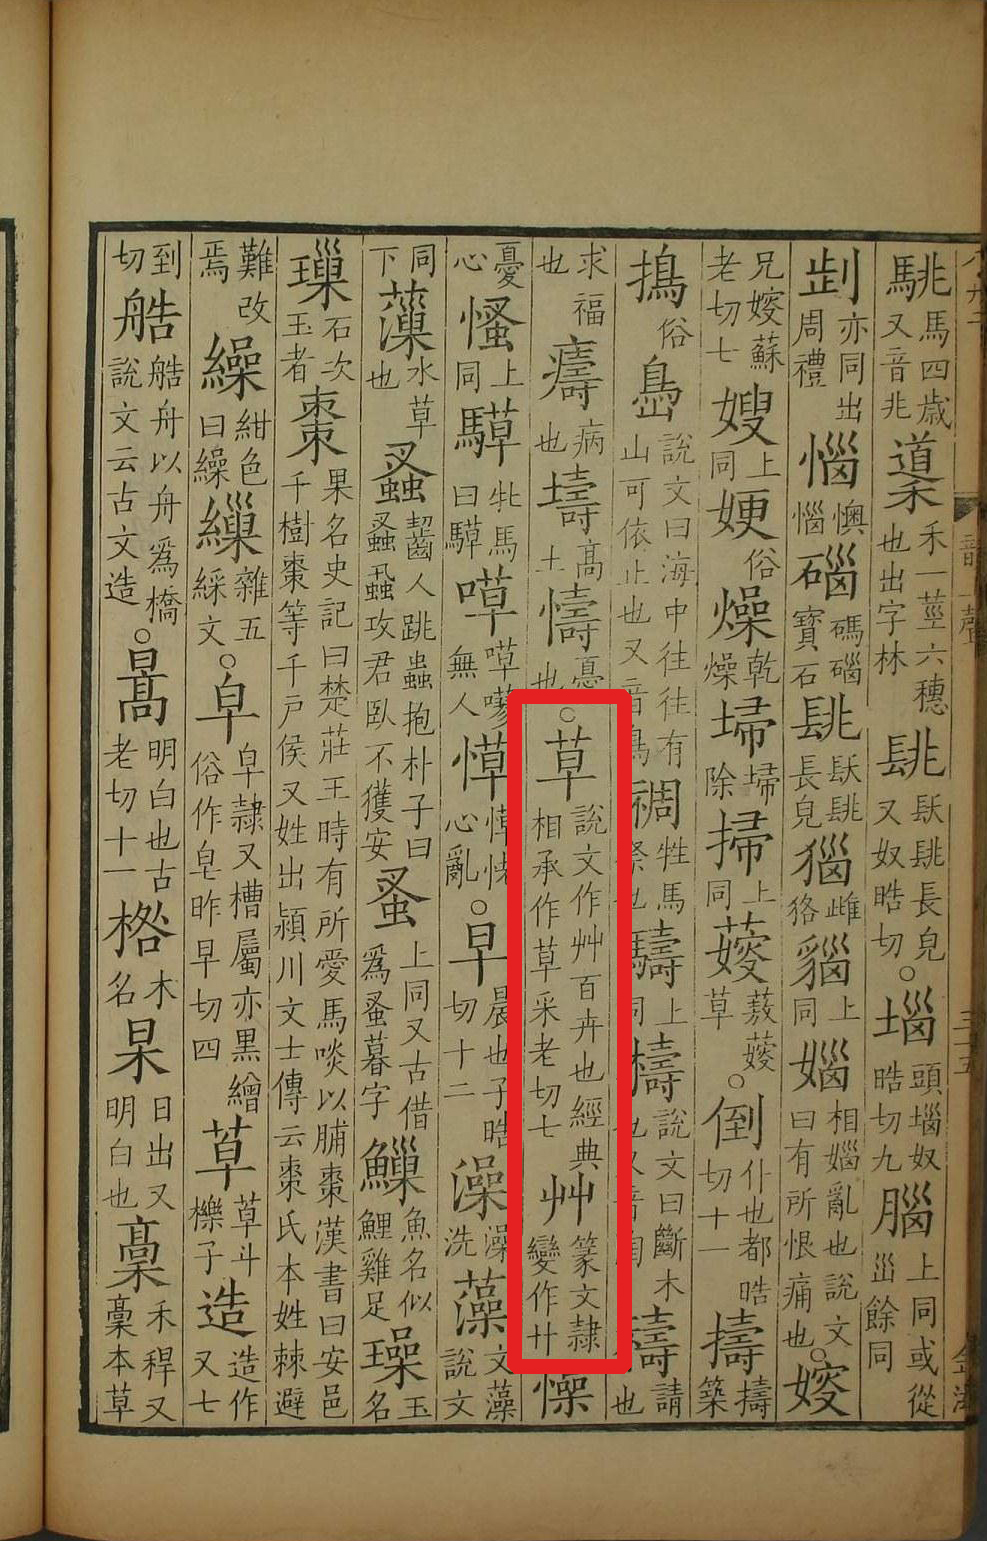 駣馬四歳又音兆䆃禾一莖六穗也出字林長皃又奴晧切○堖頭堖奴晧切九腦上同或從𡿺餘同
亦同出周禮惱懊惱碯碼碯寶石長皃㺁雌狢上同㛴相㛴亂也說文曰有所恨痛也○㛮
兄㛮蘇老切七嫂上同㛐俗燥乾燥埽埽除掃上同䕅䓘䕅草○倒仆也都晧切十一擣擣築
搗俗㠀說文曰海中往往有山可依止也又音鳥禂牲馬祭也䮻上同檮說文曰斷木也又音陶禱請也
求福也㿒病也壔高土懤憂也○草說文作艸百卉也經典相承作草采老切七艸篆文隷變作廾懆
憂心慅上同騲牝馬曰騲無人愺愺恅心亂○早晨也子晧切十二澡澡洗藻文藻說文
同下薻水草也䖣齧人跳蟲抱朴子曰䖣蝨攻君臥不獲安蚤上同又古借爲蚤暮字鱢魚名似鯉雞足璪玉名
璅石次玉者棗果名史記曰楚莊王時有所愛馬啖以脯棗漢書曰安邑千樹棗等千戸侯又姓出潁川文士傳云棗氏本姓棘避
難改焉繰紺色曰繰繅雜五綵文○皁皁隷又槽屬亦黑繒俗作皂昨早切四草草斗櫟子造造作又七
到切艁艁舟以舟爲橋說文云古文造○暠明白也古老切十一㭱木名杲日出又明白也稾禾稈又稾本草